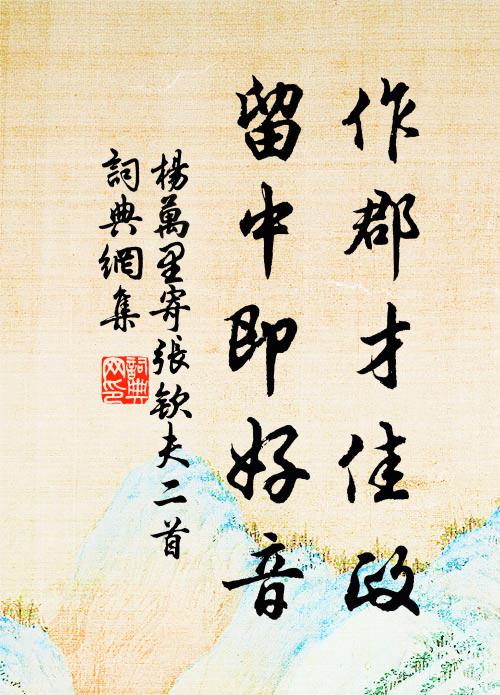 作郡才佳政
留中即好音
楊萬里寄張欽夫二首
詞典網集
詞典網印